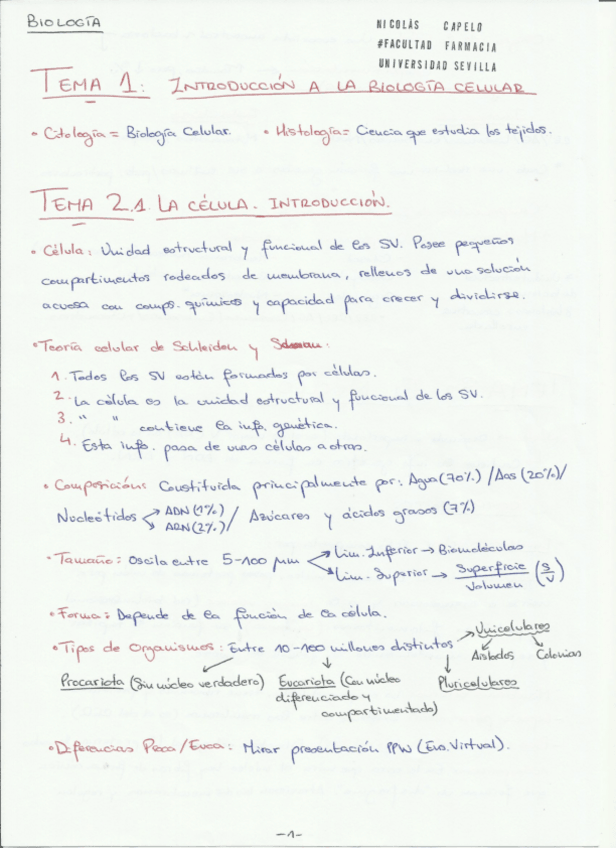 BIOLOGÍA
NICOLÁS CAPELO
#FACULTAD FARMACIA
UNIVERSIDAD SEVILLA
TEMA 1: INTRODUCCIÓN A LA BIOLOGÍA CELULAR
• Citología = Biología Celular. • Histología = Ciencia que estudia los tejidos.
TEMA 2.1. LA CÉLULA. INTRODUCCIÓN.
• Célula: Unidad estructural y funcional de los SV. Posee pequeños
compartimentos rodeados de membrana, rellenos de una solución
acuosa con comps. químicos y capacidad para crecer y dividirse.
• Teoría celular de Schleiden y
1. Todos los SV están formados por células.
2. La célula es la unidad estructural y funcional de los SV.
3. " " contiene la info. genética.
4. Esta info. pasa de unas células a otras.
• Composición: Constituida principalmente por: Agua (70%) / Aas (20%) /
Nucleótidos → ADN (1%) → ARN (2%) / Azúcares y ácidos grasos (7%)
• Tamaño: Oscila entre 5-100 µm → Lim. Inferior → Biomoléculas
→ Lim. Superior → Superficie / Volumen (S/V)
• Forma: Depende de la función de la célula.
• Tipos de Organismos: Entre 10-100 millones distintos → Unicelulares
Aislados Colonias
Procariota (Sin núcleo verdadero) Eucariota (Con núcleo Pluricelulares
diferenciado y
compartimentado)
• Diferencias Proca/Euca: Mirar presentación PPW (Ens. Virtual).
-1-